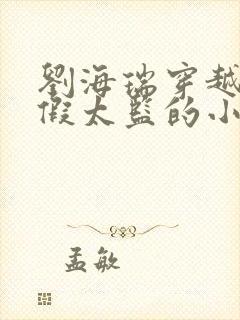 劉海瑞穿越
假太監的小
孟敏